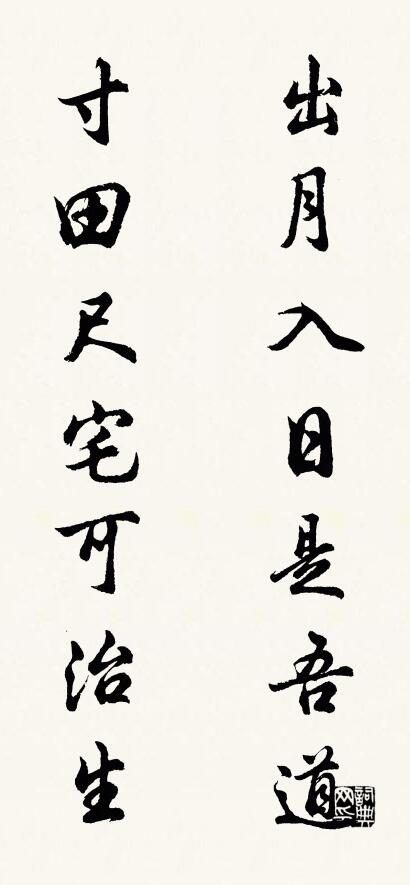 出月入日是吾道
寸田尺宅可治生